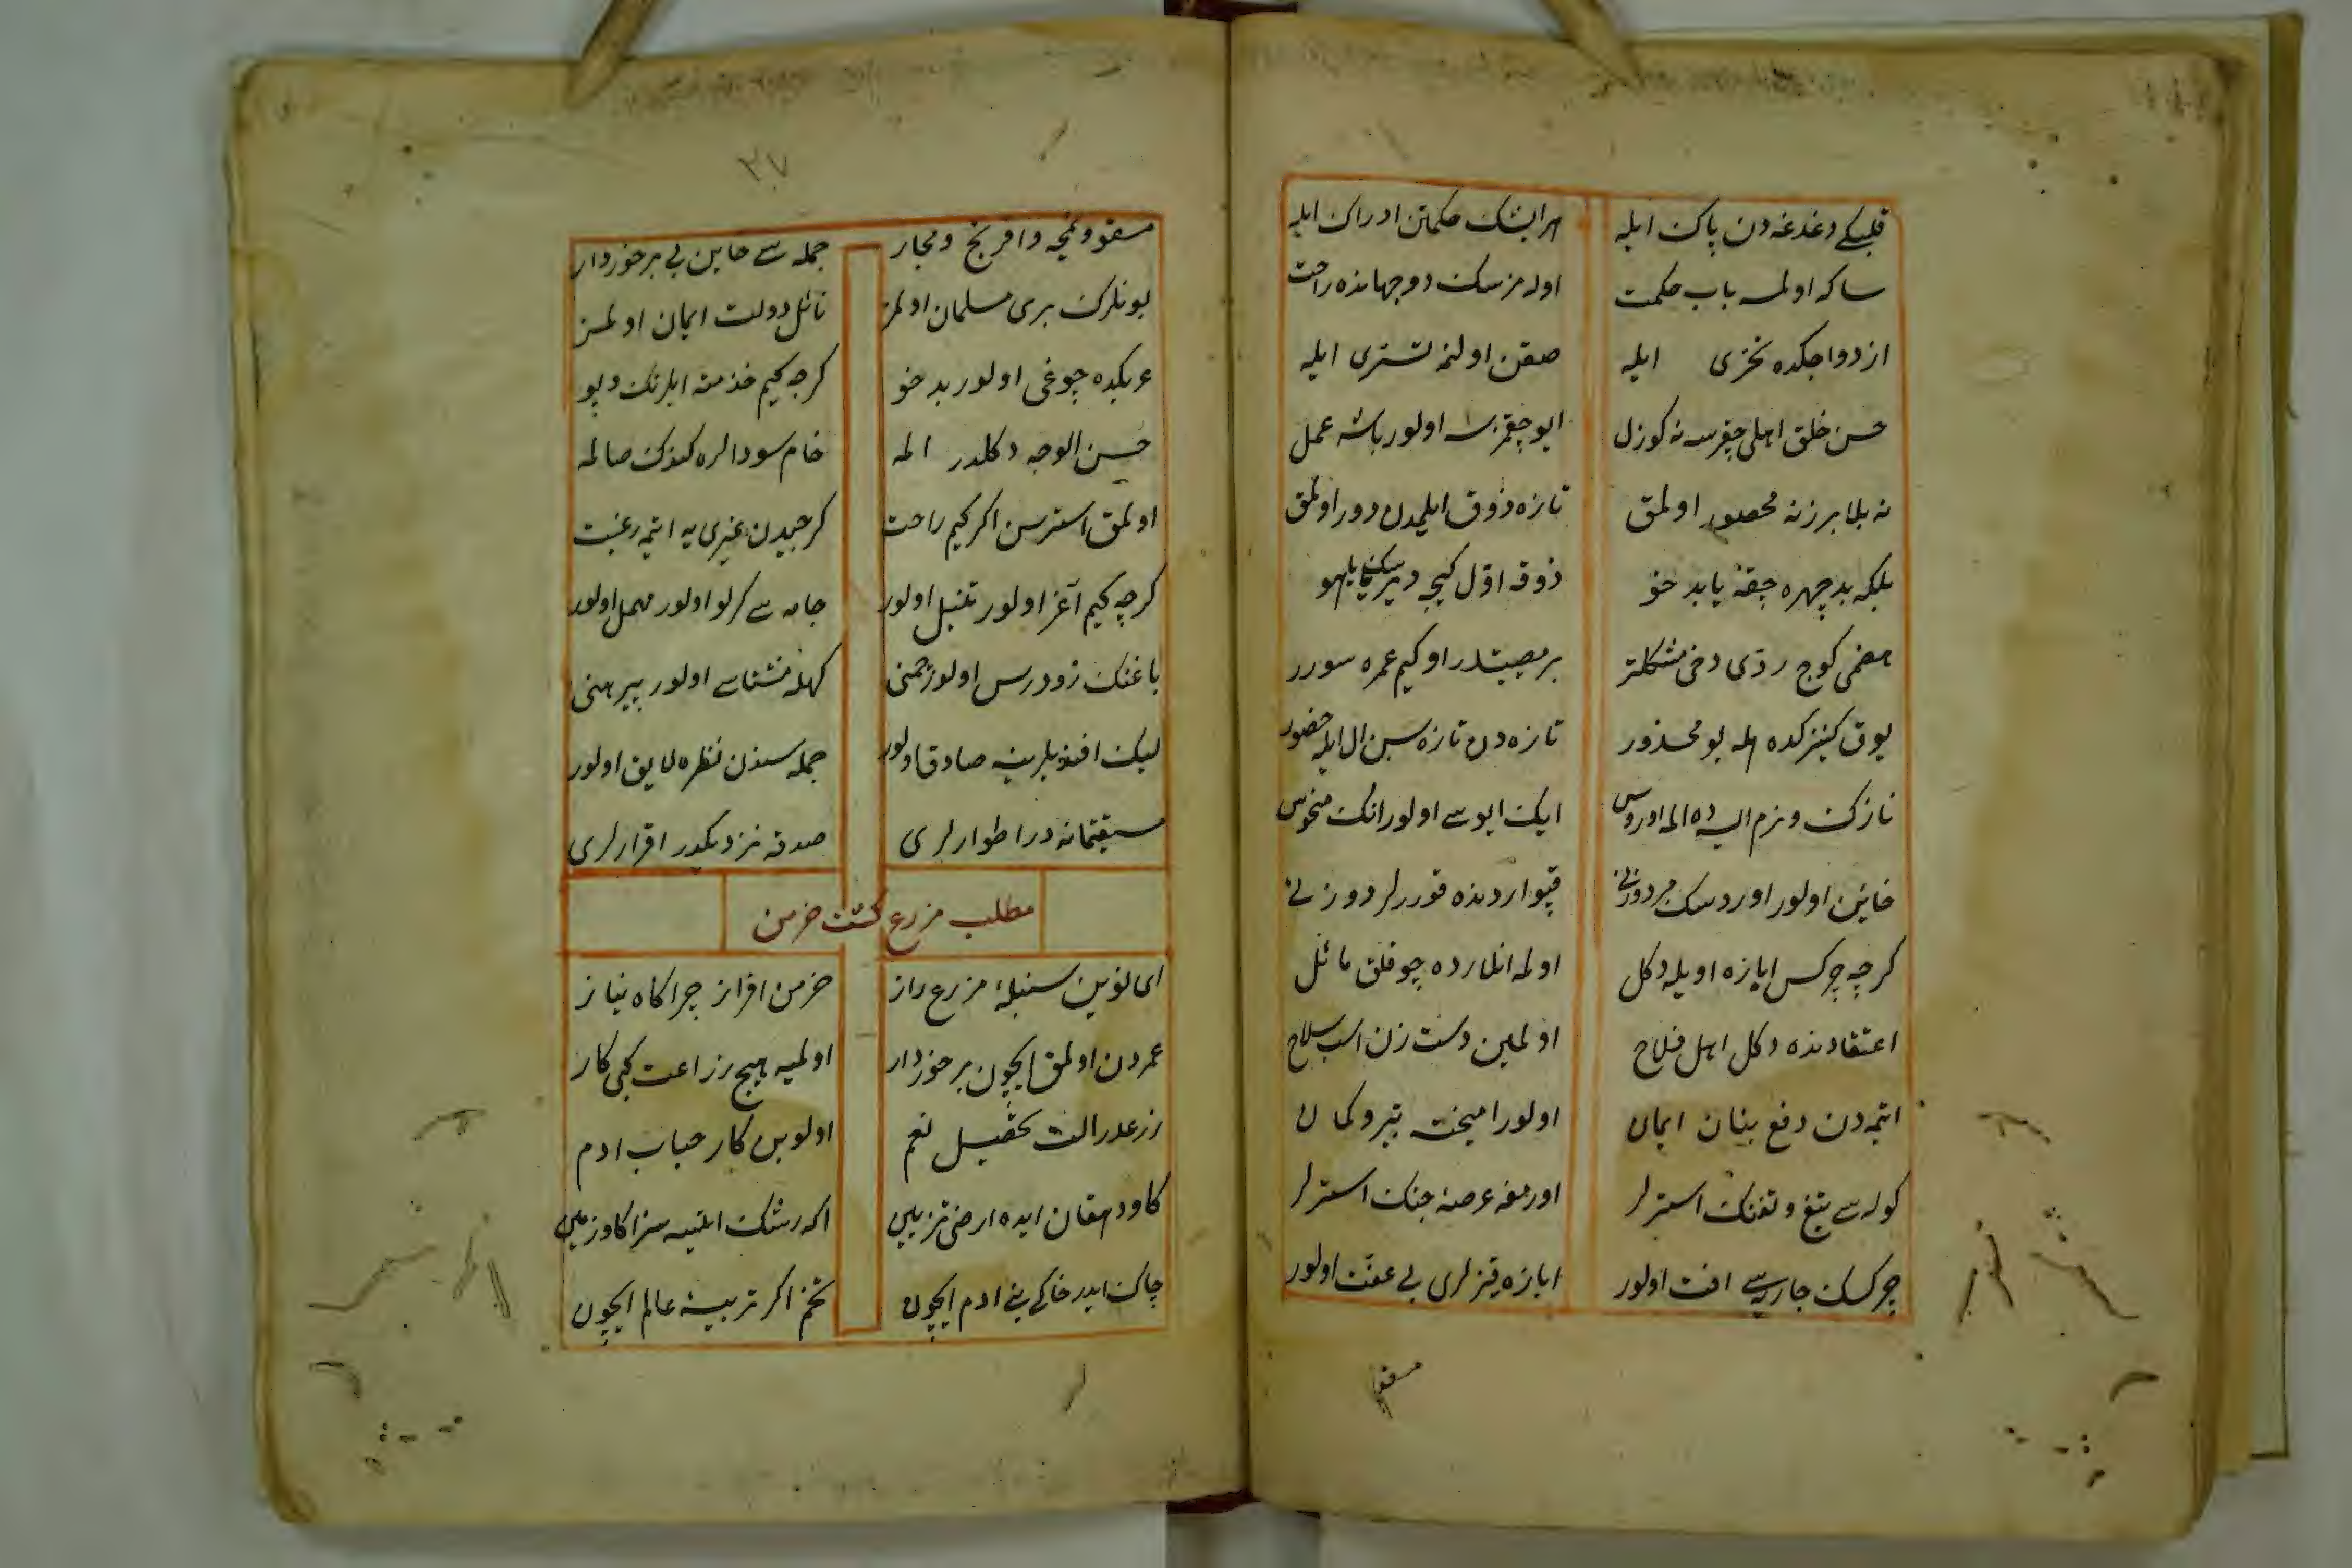 قلبكی دغدغه دن پاك ایله هر ایشك حكمتن ادراك ایله
ساكه اولمسه باب حكمت اوله مزسك دو جهانده راحت
ازدواجكده تحری ایله صقن اولنمه تسری ایله
حسن خلق اهلی چقرسه نه كوزل ایو چقمزسه اولور باشه عمل
نه بلا بر زنه محصور اولمق تازه ذوق ایلمدن دور اولمق
بلكه بد چهره چقه یا بد خو ذوقه اول كیجه دیر
هضمی كوج ردی دخی مشكلتر بر مصیبتدر او كیم عمره سورر
یوق كنیزكده هله بو محذور تازه دن تازه سین ال ایله حضور
نازك و نرم ایسه ده اله اوروس ایك ایوسی اولور انك منحوس
خاین اولور اوردسك قپو اردنده قورر لر دوزنی
كرچه چركس ابازه اویله دكل اوله انلرده چوقلق مائل
اعتقادنده دكل اهل فلاح اولمین دست زن اسب سلاح
ایتمه دن دفع بنان ایمان اولور امیخته تیر و كمان
كوله سی تیغ و تفنك استرلر اورمغه عرصهٔ جنك استرلر
چركسك جاریه سی افت اولور ابازه قیزلری بی عفت اولور
مسقو
٣٧
مسقو و نمچه و افرنج و مجار جمله سی خاین بی برخوردار
بونلرك بری مسلمان اولمز نائل دولت ایمان اولمز
عربكده چوغی اولور بد خو كرچه كیم خذمته ایلر تك و پو
حسن الوجه دكلدر اله خام سودالره كندك صالمه
اولمق استرسن اكر كیم راحت كرجیدن غیری یه ایتمه رغبت
كرچه كیم آغز اولور تنبل اولور جامه سی كرلو اولور مهمل اولور
باغنك زودرس اولور چمنی كهله منشاسی اولور پیرهنی
لیك افندیلرینه صادق اولور جمله سندن نظره لایق اولور
مستقیمانه در اطوارلری صدقه نزدیكدر اقرارلری
مطلب مزرع كشت خرمن
ای نوین سنبلهٔ مزرع راز خرمن افراز چراكاه نیاز
عمردن اولمق ایچون برخوردار اولمیه هیچ زراعت كبی كار
زرعدر الت تحصیل نعم اولوبن كار جناب ادم
كاو دهقان ایده ارضی تزیین اكه رشك ایلیسه سزا كاو زمین
چاك ایدر خاكی بنی ادم ایچون تخم اكر تربیهٔ عالم ایچون